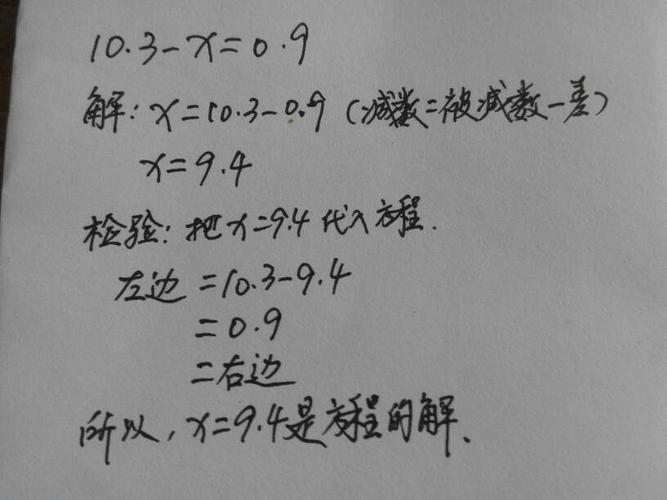 10.3-x=0.9
解:x=10.3-0.9(减数=被减数-差)
x=9.4
检验:把x=9.4代入方程.
左边=10.3-9.4
=0.9
=右边
所以,x=9.4是方程的解、